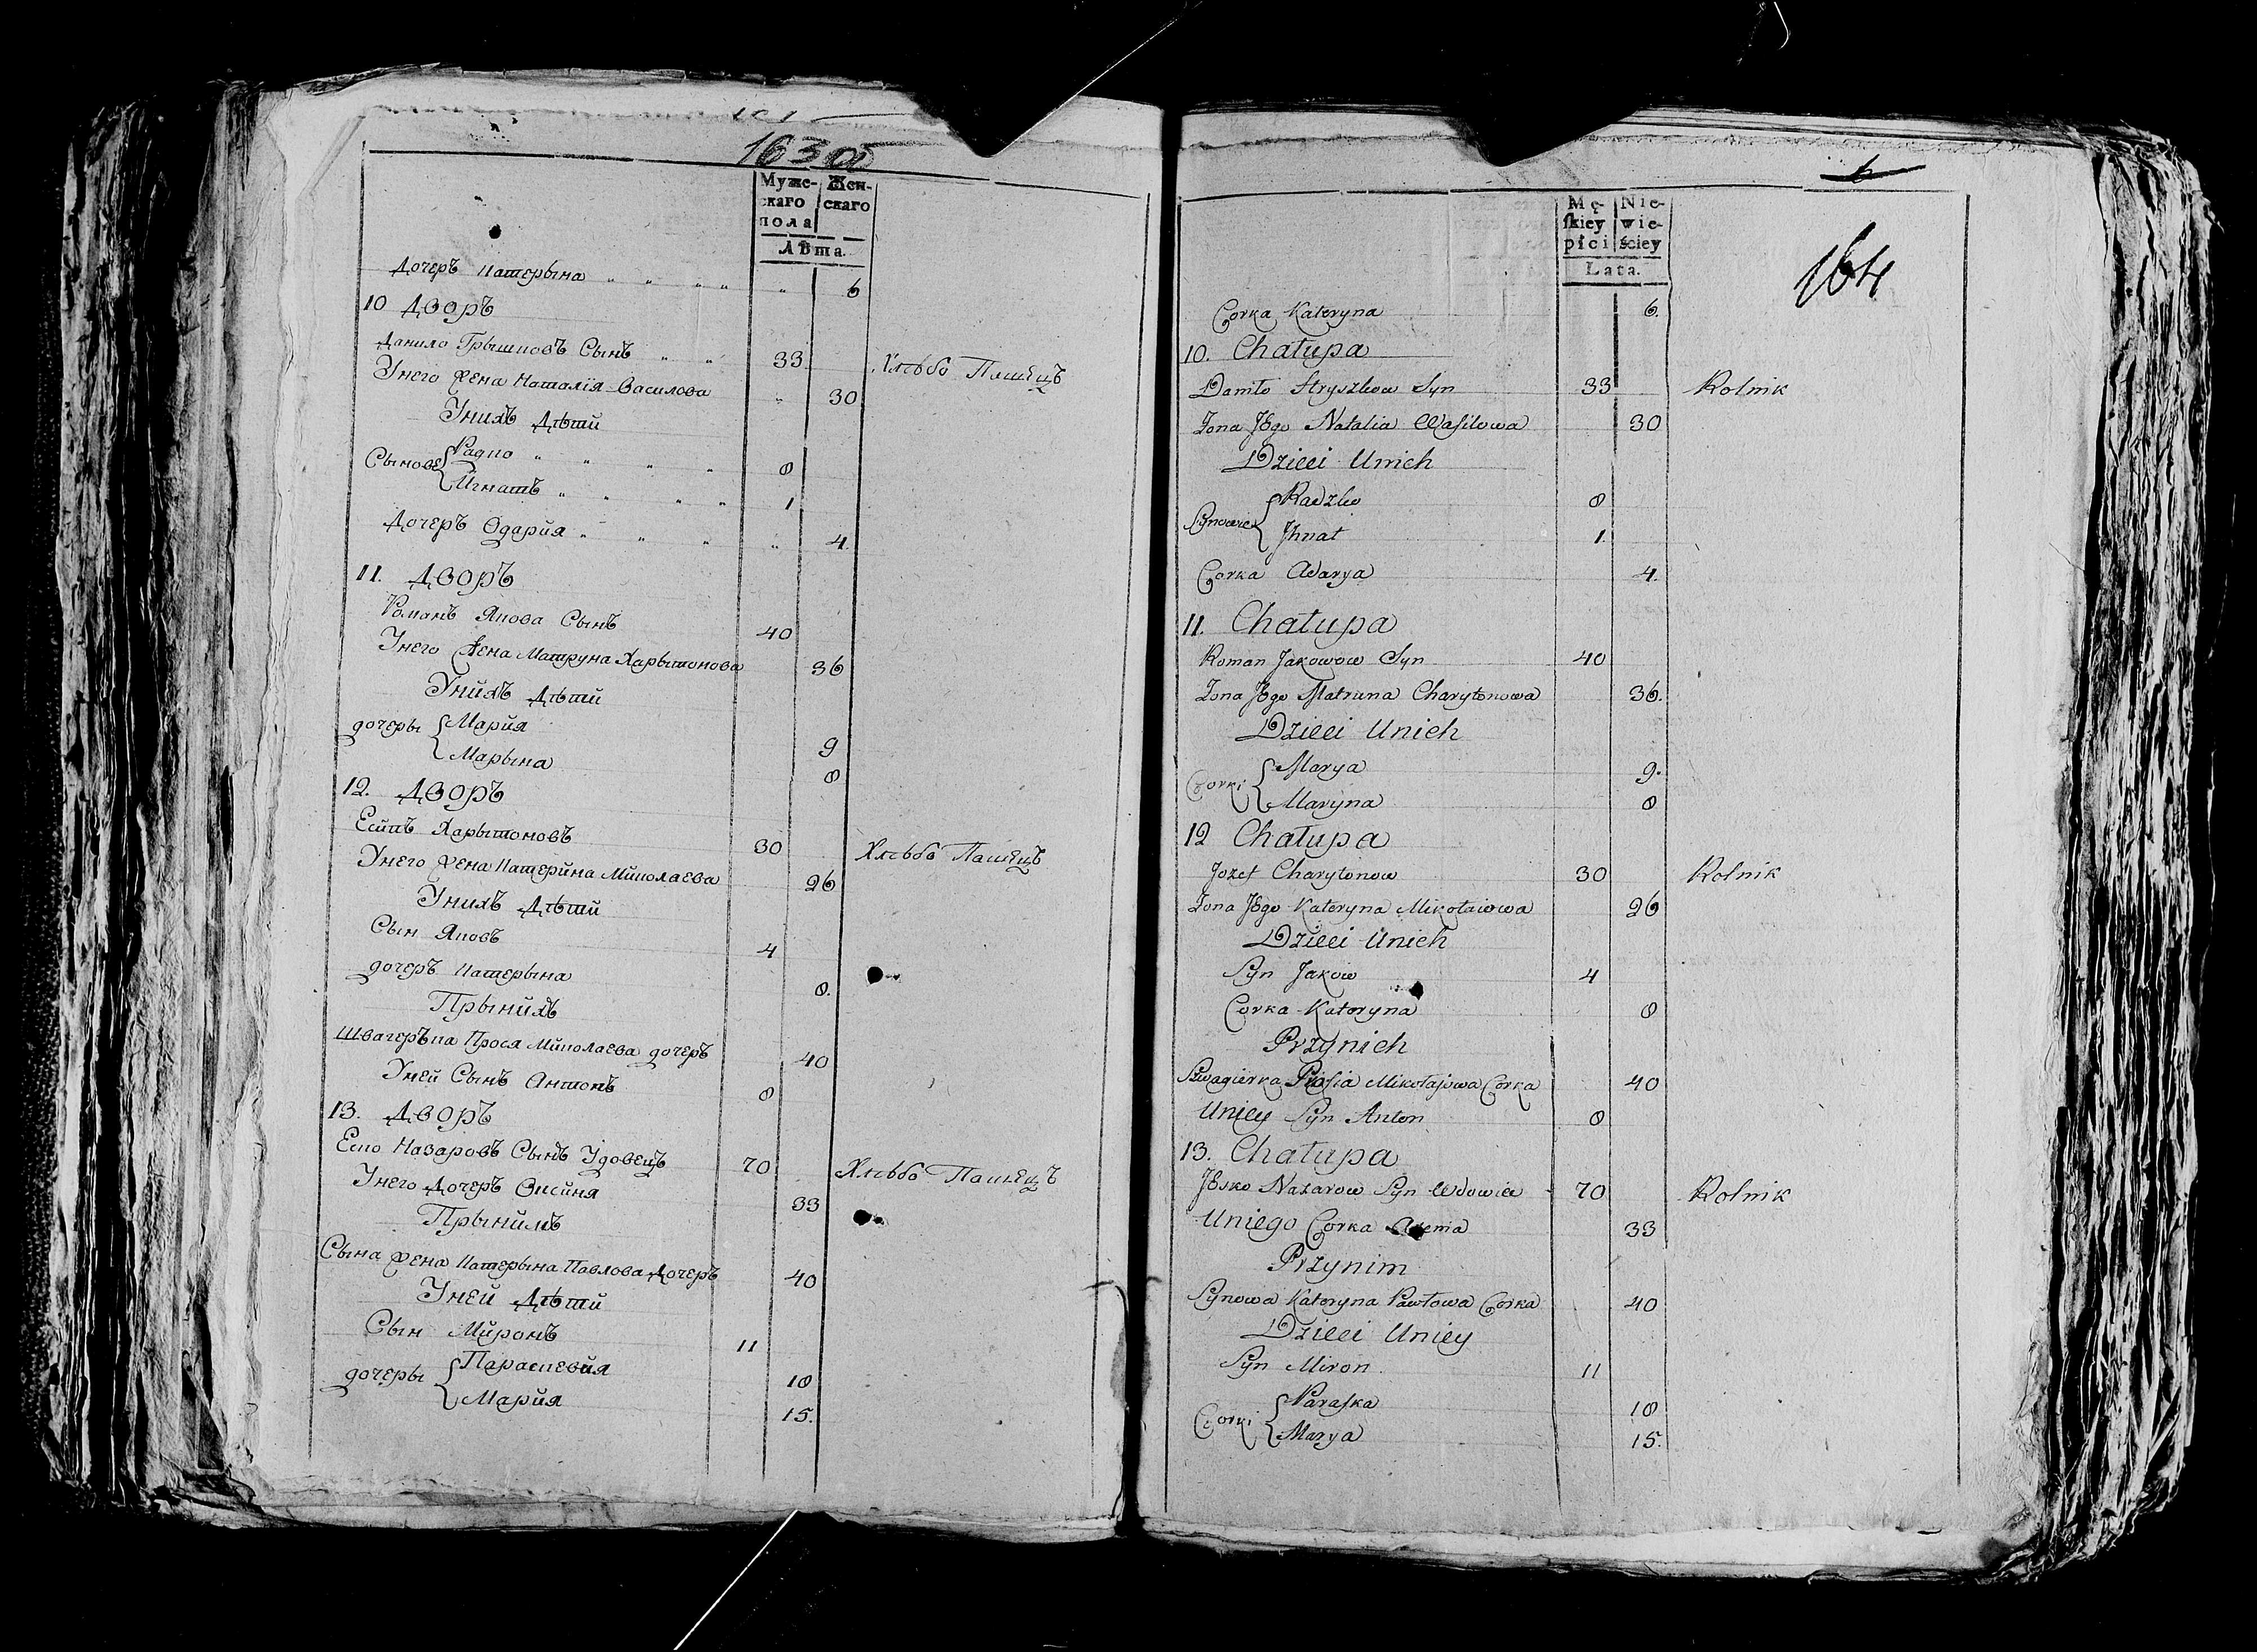 163 об
Муже-
скаго
пола
Жен-
скаго
Лѣта.
Дочеръ Катерына " " " " " 6
10 Дворъ
Данило Грышковъ Сынъ " " 33 Хлѣбо Пашецъ
Унего жена Наталія Василова " 30
Унихъ Дѣтй
Сынове { Радко " " " " 8
Игнатъ " " " " 1
Дочеръ Одарйя " " " " 4.
11. Дворъ
Романъ Якова Сынъ 40
Унего жена Матруна Харытонова 36
Унйхъ Дѣтй
дочеры { Марйя 9
Марына 8
12. Дворъ
Есйпъ Харытоновъ 30 Хлѣбо Пашецъ
Унего жена Катерйна Мйколаева 26
Унихъ Дѣтй
Сын Яковъ 4
дочеръ Катерына 8.
Прынйхъ
Швагеръка Прося Мйколаева дочеръ 40
Уней Сынъ Антонъ 8
13. Дворъ
Еско Назаровъ Сынъ Удовецъ 70 Хлѣбо Пашецъ
Унего Дочеръ Оксйня 33
Прынймъ
Сына жена Катерына Павлова Дочеръ 40
Уней Дѣтй
Сын Мйронъ 11
дочеры { Параскевйя 18
Марйя 15.
6
164
Mę-
ſkiey
płci
Nie-
wie-
ściey
Lata.
Corka Kateryna 6.
10. Chałupa
Daniło Hryszkow Syn 33 Rolnik
Żona Jego Natalia Waſilowa 30
Dzieci Unich
Synowie { Radzko 8
Jhnat 1.
Corka Adarya 4.
11. Chałupa
Roman Jakowow Syn 40
Żona Jego Matruna Charytonowa 36.
Dzieci Unich
Corki { Marya 9.
Maryna 8
12 Chałupa
Jozef Charytonow 30 Rolnik
Żona Jego Kateryna Mikołaiowa 26
Dzieci Unich
Syn Jakow 4
Corka Kateryna 8
Przynich
Szwagierka Proſia Mikołajowa Corka 40
Uniey Syn Anton 8
13. Chałupa
Jesko Nazarow Syn Wdowiec 70 Rolnik
Uniego Corka 33
Przynim
Synowa Kateryna Pawłowa Corka 40
Dzieci Uniey
Syn Miron 11
Corki { Paraſka 18
Marya 15.